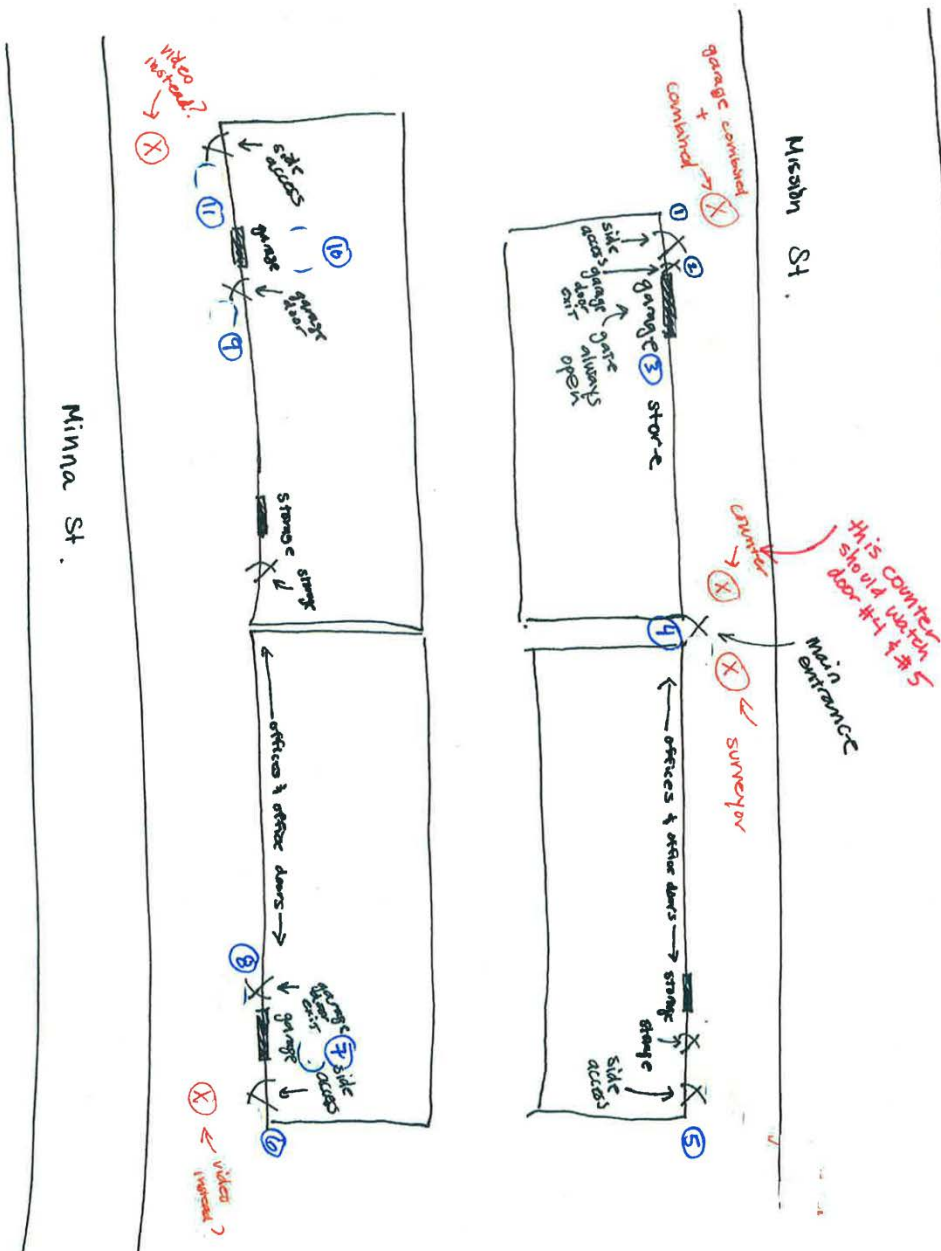 Mission St.
garage combined
+
combined → X
①
②
side
access
garage
door
exit
garage
③
gate
always
open
store
counter
→ X
this counter
should watch
door #4 & #5
④
main
entrance
X
surveyor
← offices & office doors →
storage
storage
side
access
⑤
video
instead?
→ X
side
access
⑪
garage
⑩
garage
door
⑨
storage
storage
← offices & office doors →
⑧
garage
door
exit
garage
⑦
side
access
⑥
X ← video
instead?
Minna St.